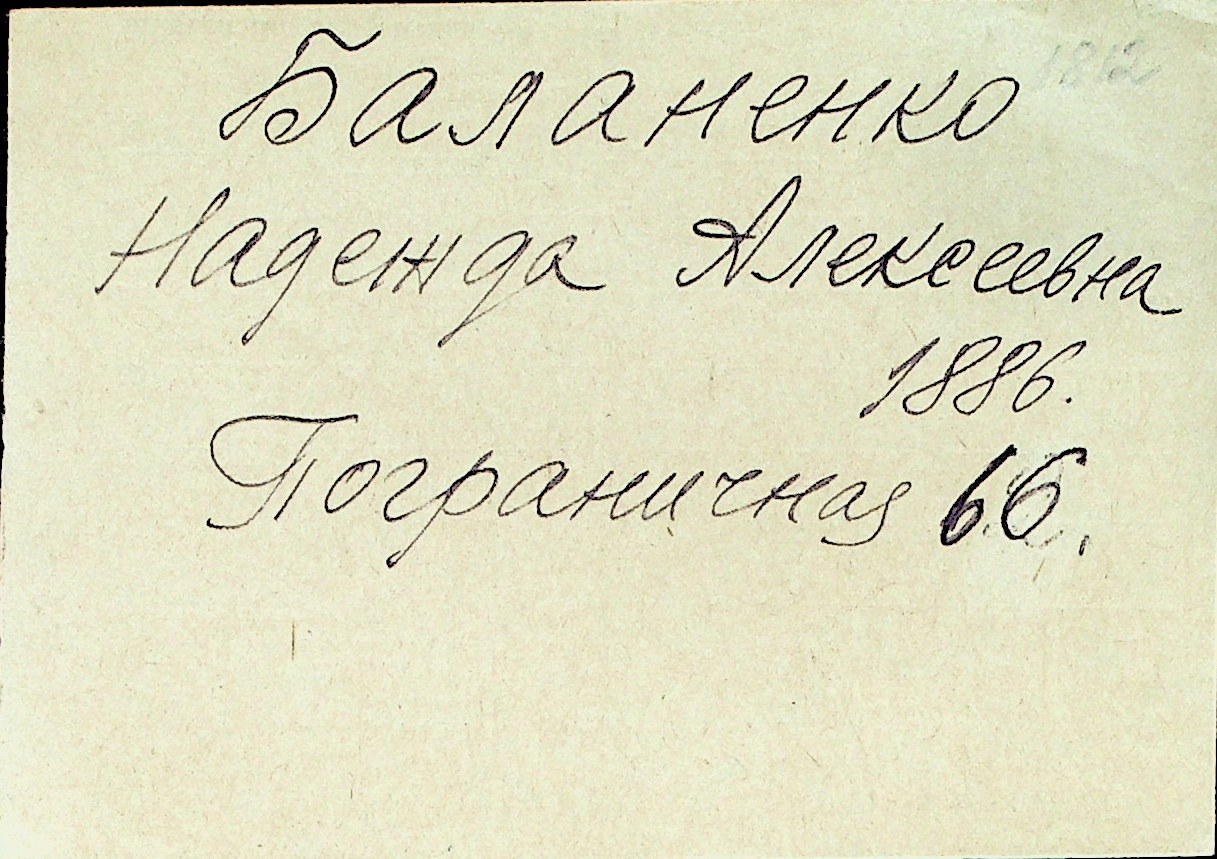 1812
Баланенко
Надежда Алексеевна
1886.
Пограничная 66.